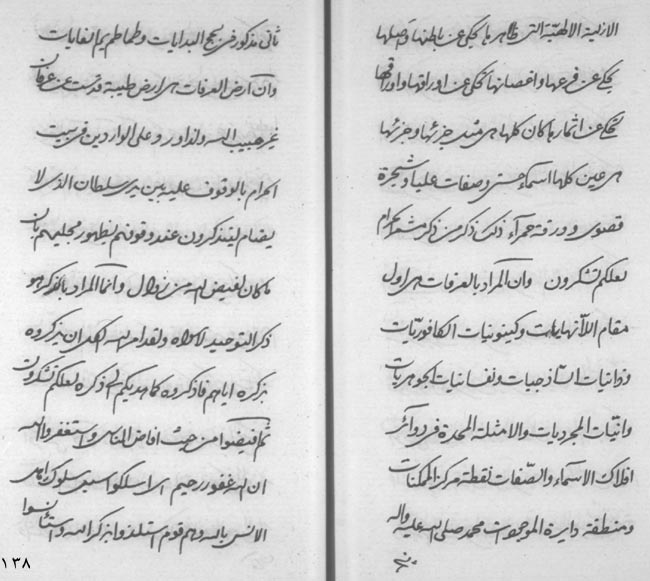 الازلية الالهيّة التى ظاهرها يحكى عن باطنها و اصلها
يحكى عن فرعها و اغصانها يحكى عن اوراقها و اوراقها
يحكى عن اثمارها كان كلها هى جزئها و جزئها
هى عين كلها اسماء حسنى و صفات عليا و شجرة
قصوى و ورقة حمرآء ذلك ذكر من ذكر مشعر الحرام
لعلكم تشكرون و ان المراد بالعرفات هى اول
مقام اللّانهايات و كينونيات الكافوريّات
و ذاتيات السّاذجيات و نفسانيات الجوهريات
و انيّات المجرديات و الامثلة المحدة فى دوآئر
افلاك الاسمآء و الصّفات نقطة مركز الممكنات
و منطقة دايرة الموجودات محمد صلى الله عليه و اله
ثانى مذكور فى لجج البدايات و طماطم يم الغايات
و ان ارض العرفات هى ارض طيبة قدست عن عرفان
غير حبيب الله و لذا ورد على الواردين فى بيت
الحرام بالوقوف عليه بين يدى سلطان الذى لا
يضام ليتذكرون عند وقوفهم بظهور مجليهم بان
ما كان لفيض الله من زوال و انما المراد بالذكر هو
ذكر التوحيد لا سواه و لقد امر الله العباد ان يذكروه
بذكره اياهم فاذكروه كما هديكم الى ذكره لعلكم تشكرون
ثم افيضوا من حيث افاض الناس و استغفروا الله
ان الله غفور رحيم اى اسلكوا سبيل سلوك اهل
الانس بالله و هم قوم استلذوا بذكر الله و استأنسوا
١٣٨